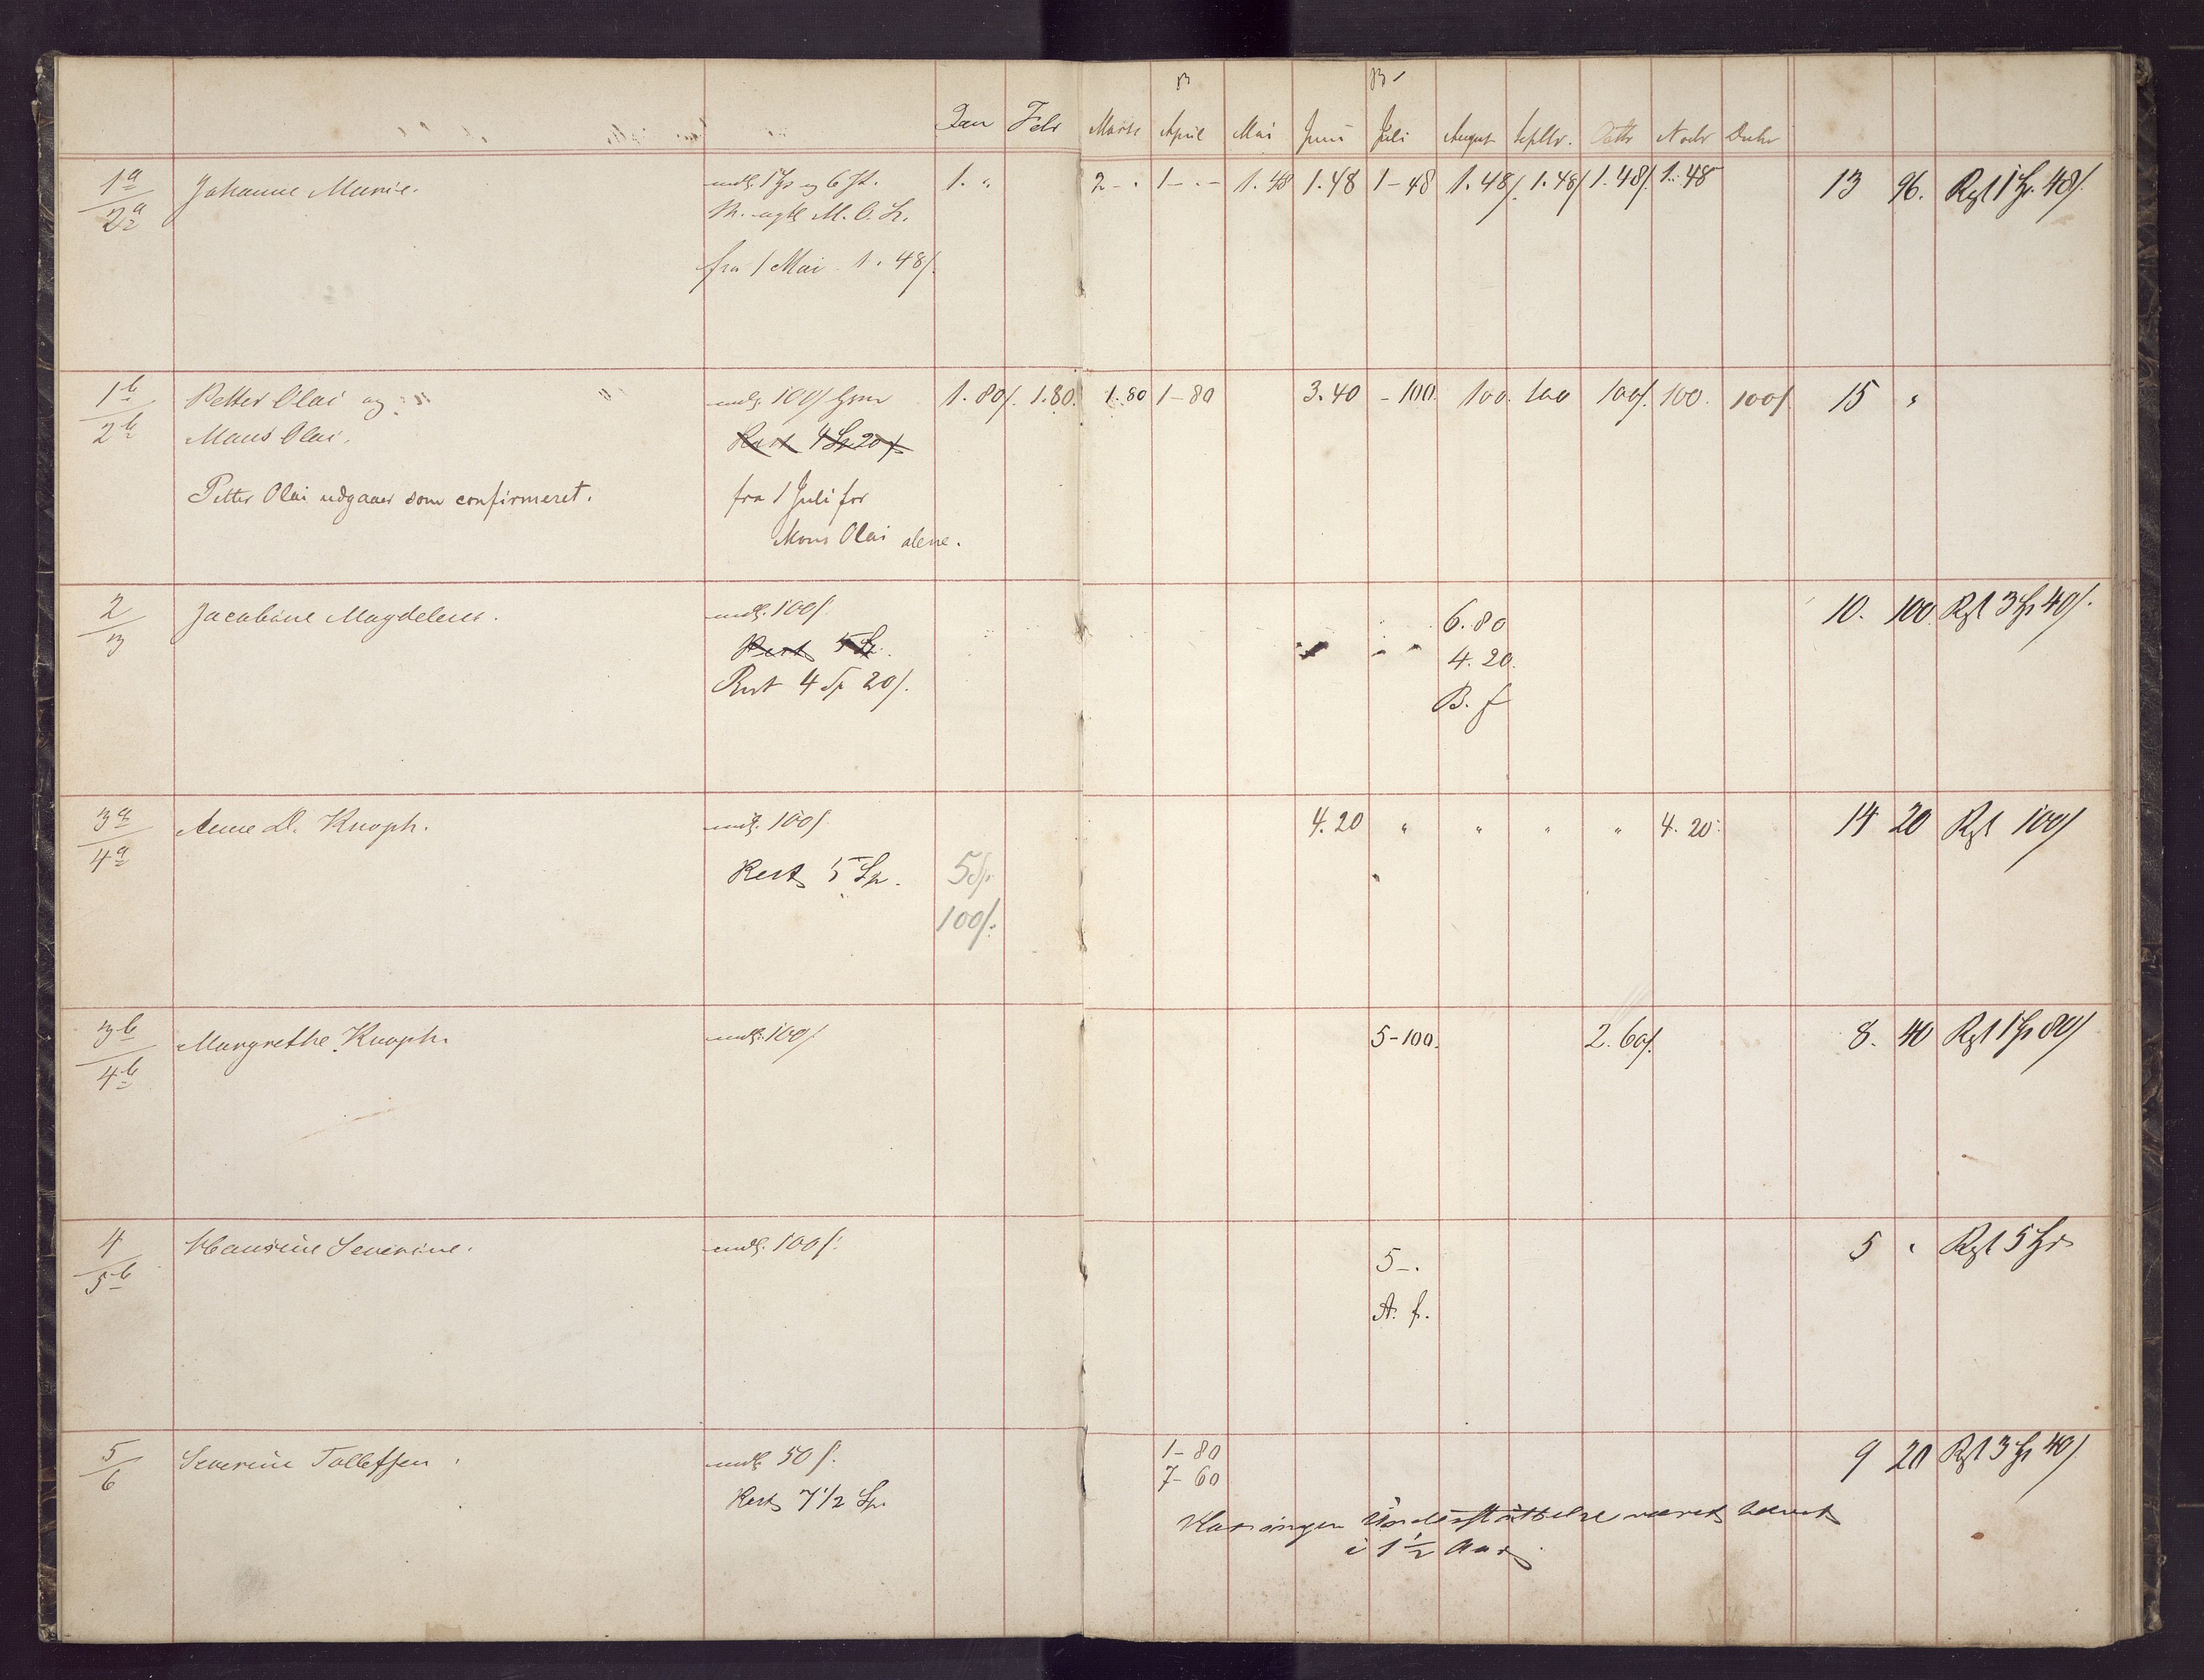 B B
Jan Febr Marts April Mai Juni Juli August Septbr. Octbr Novbr Decbr
1a/2a Johanne Marie. mdl. 1 Sp og 6 st. 1. " 2 - . 1 - . - 1.48 1.48 1-48 1.48/ 1.48/ 1.48/ 1.48 13 96. Rest 1 Sp. 48/.
M. O. L.
fra 1 Mai 1. 48/.
1b/2b Petter Olai og mdl. 100/ 1.80/. 1.80. 1.80 1-80 3.40 -100. 100. 100 100/. 100. 100/ 15 "
Mons Olai. Rest 4 Sp 20/
Petter Olai udgaaer som confirmeret. fra 1 Juli for
Mons Olai alene.
2/3 Jacobine Magdelene. mdl. 100/. 6.80 10. 100 Rest 3 Sp 40/.
Rest 5 Sp. 4.20.
Rest 4 Sp 20/. B. f
3a/4a Anne D. Knoph. mdl. 100/ 4.20 " " " " 4.20. 14 20 Rest 100/
Rest 5 Sp. 5 Sp.
100/.
3b/4b Margrethe Knoph. mdl. 100/ 5-100. 2.60/. 8. 40 Rest 1 Sp 80/
4/5b Hansine Severine. mdl. 100/. 5-. 5 " Rest 5 Sp.
A. f.
5/6 Severine Tollefsen. mdl 50/. 1-80 9 20 Rest 3 Sp 40/
Rest 7 1/2 Sp. 7-60
Har ingen Understøttelse været hævet
i 1 1/2 Aar.